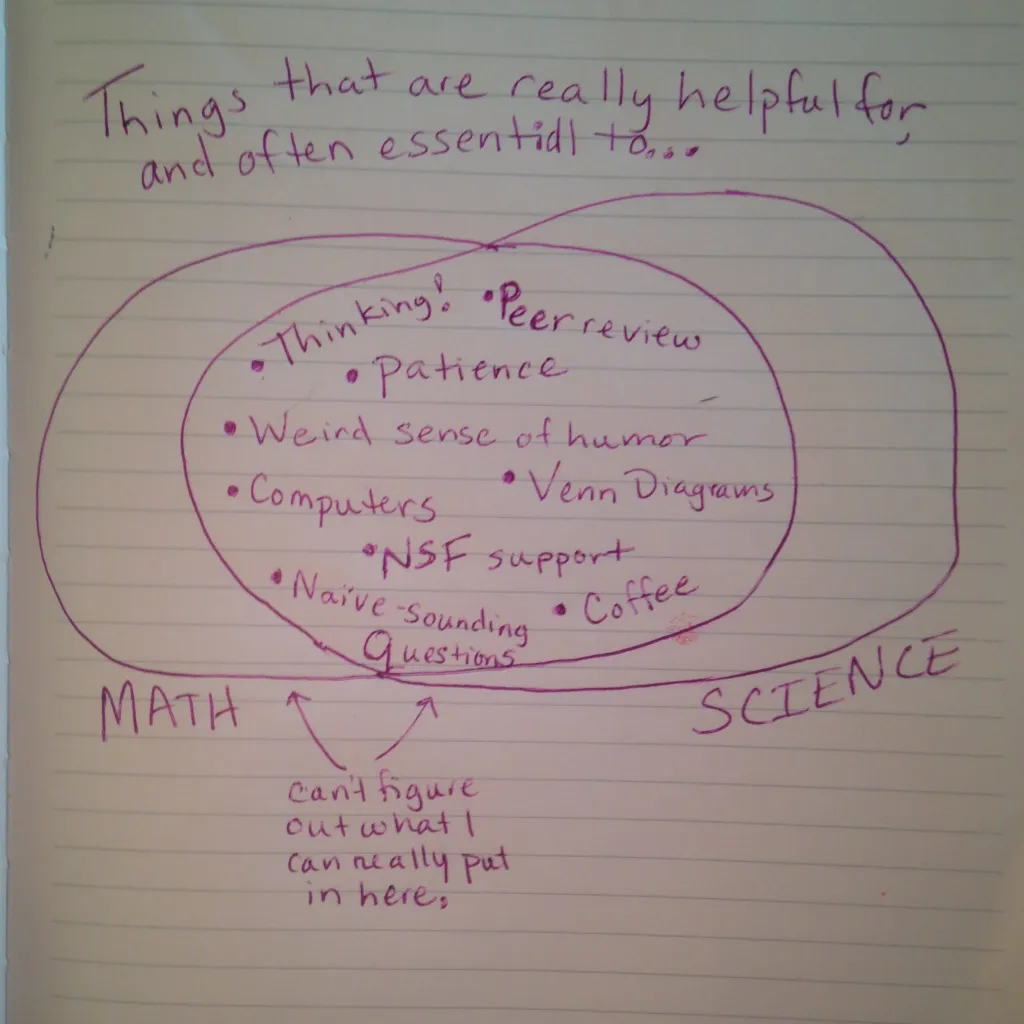 Things that are really helpful for,
and often essential to...
• Thinking!
• Peer review
• Patience
• Weird sense of humor
• Computers
• Venn Diagrams
• NSF support
• Naïve-sounding
Questions
• Coffee
MATH
SCIENCE
can't figure
out what I
can really put
in here.